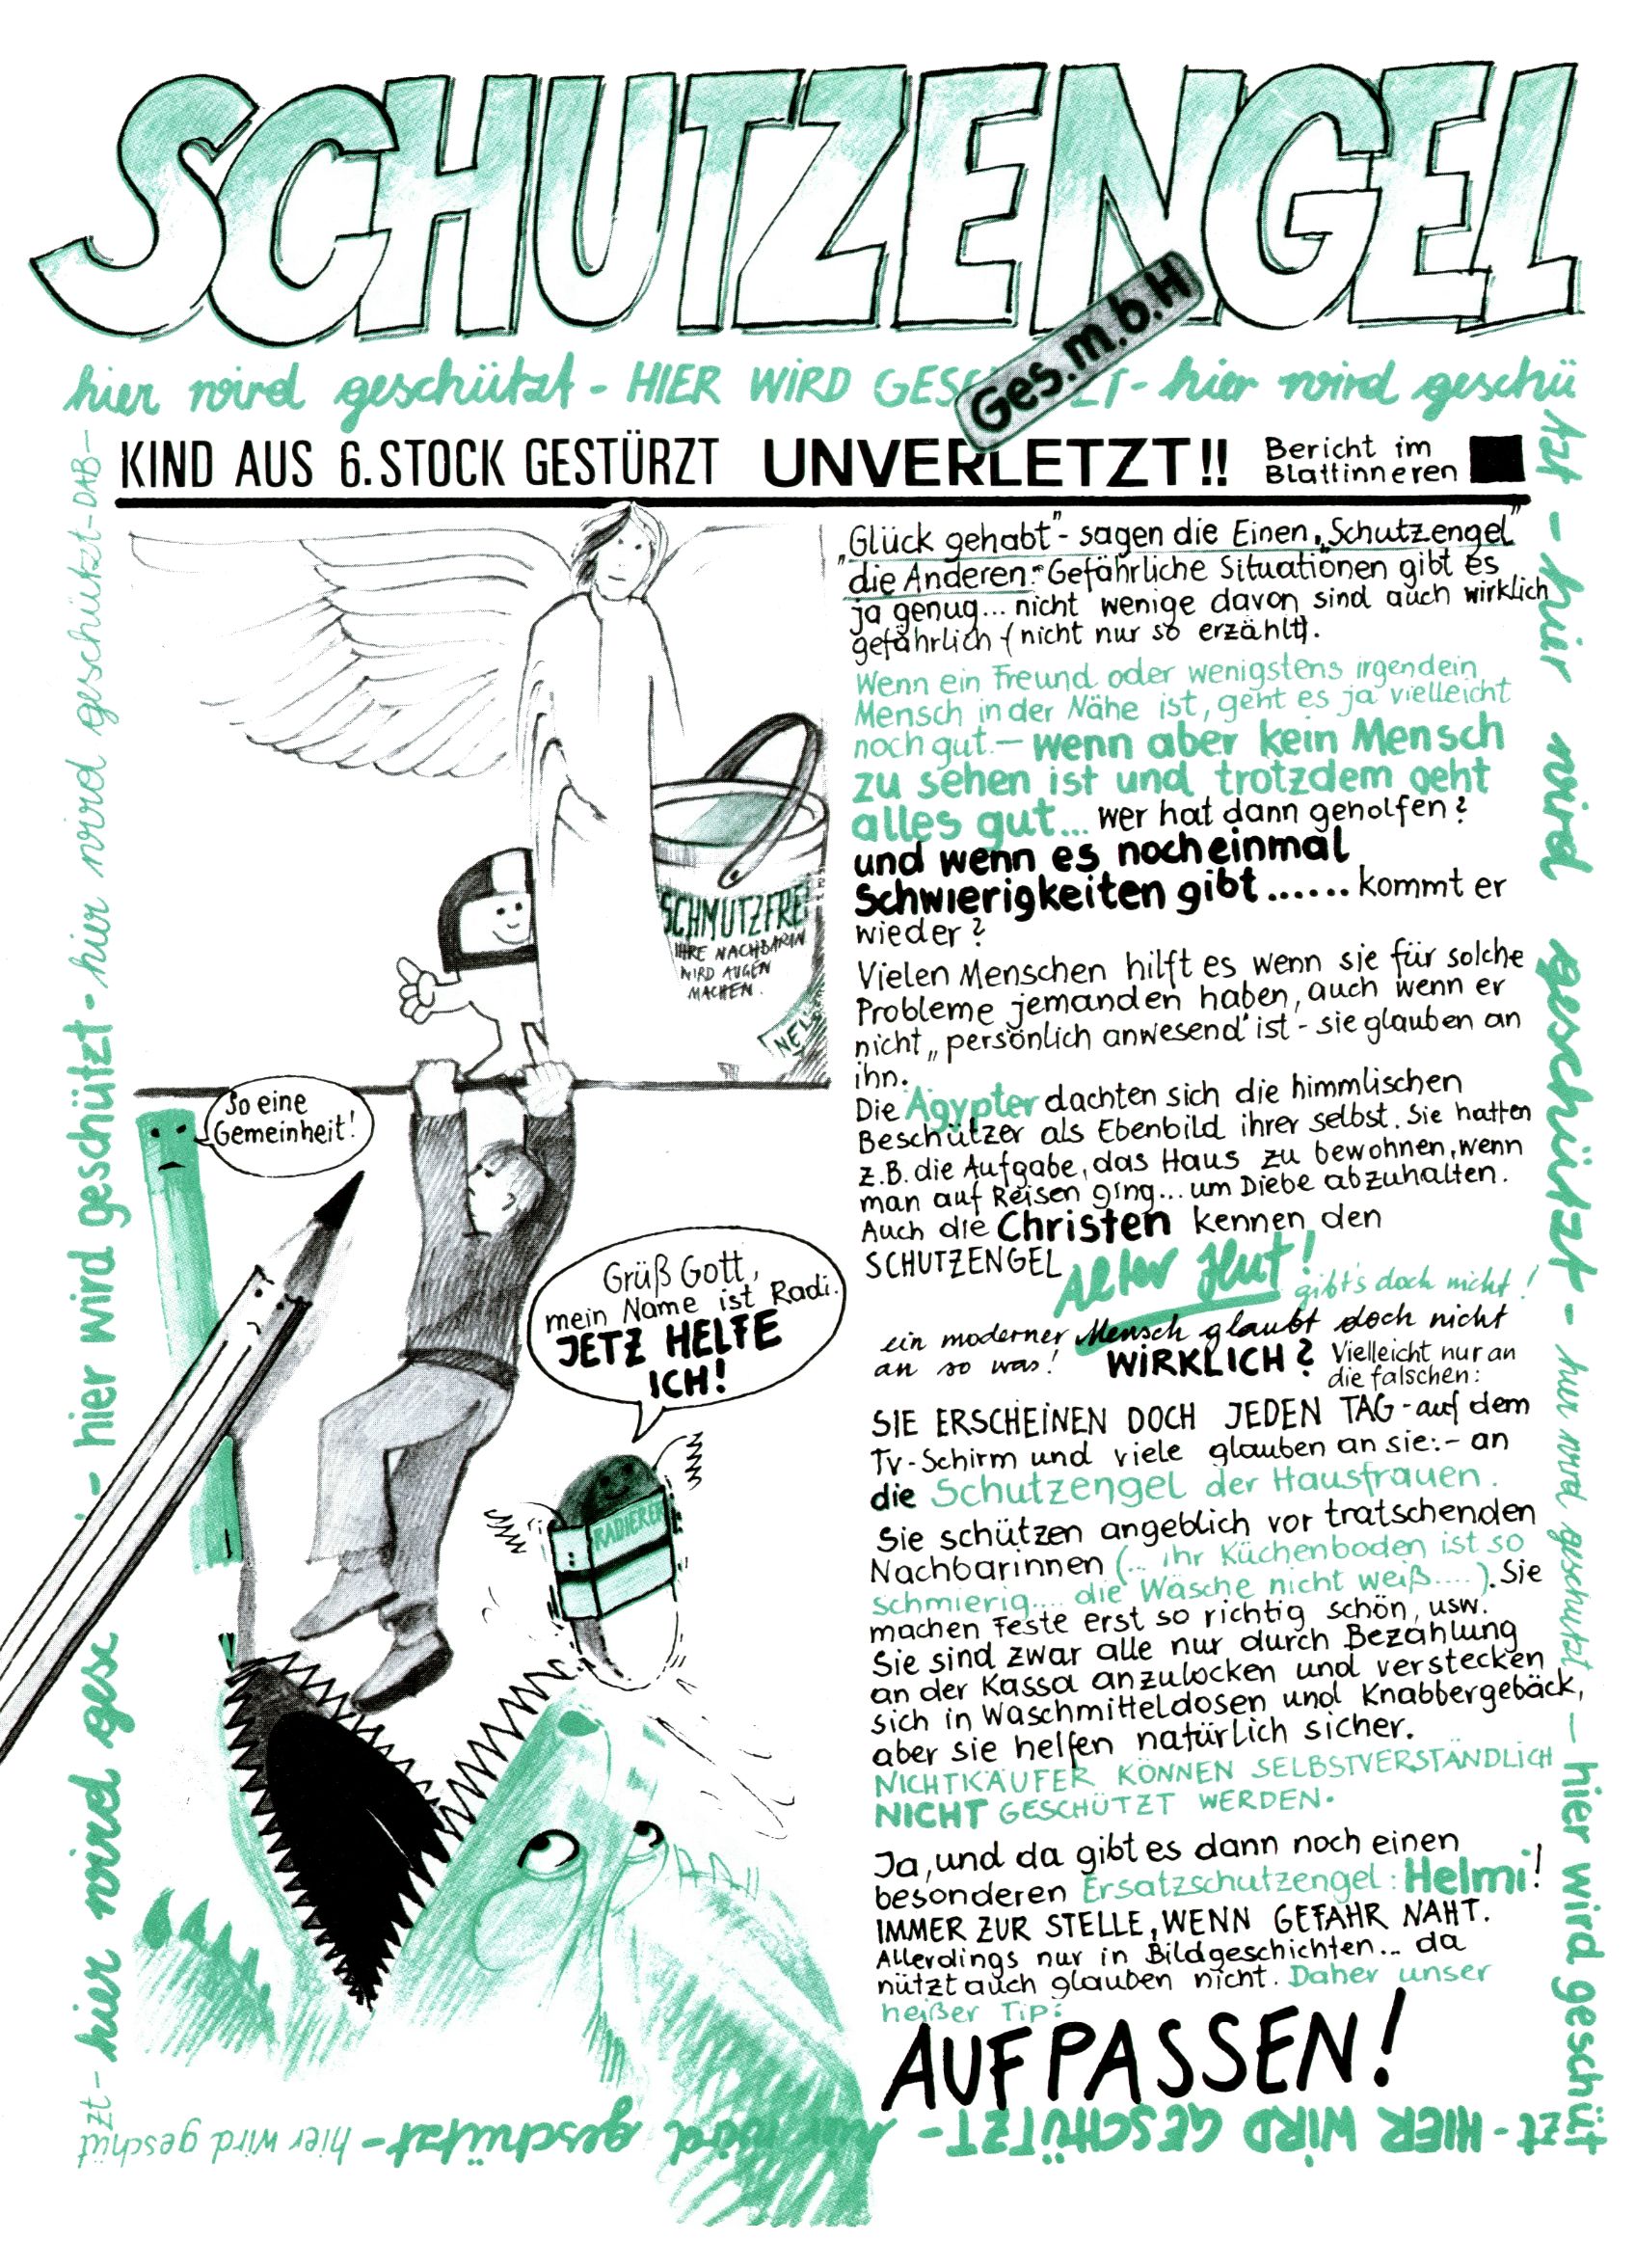 SCHUTZENGEL
Ges.m.b.H
hier wird geschützt - HIER WIRD GESCHÜTZT - hier wird geschü
tzt - hier wird geschützt - hier wird geschützt - hier wird geschüt
zt - HIER WIRD GESCHÜTZT - hier wird geschützt - hier wird geschüt
zt - hier wird gesc
- hier wird geschützt - hier wird geschützt - DAB -
KIND AUS 6. STOCK GESTÜRZT UNVERLETZT!!
Bericht im
Blattinneren
SCHMUTZFREI
IHRE NACHBARIN
WIRD AUGEN
MACHEN.
NEU
So eine
Gemeinheit!
Grüß Gott,
mein Name ist Radi.
JETZ HELFE
ICH!
RADIERER
"Glück gehabt" - sagen die Einen, "Schutzengel"
die Anderen. - Gefährliche Situationen gibt es
ja genug... nicht wenige davon sind auch wirklich
gefährlich (nicht nur so erzählt).
Wenn ein Freund oder wenigstens irgendein
Mensch in der Nähe ist, geht es ja vielleicht
noch gut. - wenn aber kein Mensch
zu sehen ist und trotzdem geht
alles gut... wer hat dann geholfen?
und wenn es noch einmal
Schwierigkeiten gibt...... kommt er
wieder?
Vielen Menschen hilft es wenn sie für solche
Probleme jemanden haben, auch wenn er
nicht „persönlich anwesend" ist - sie glauben an
ihn.
Die Ägypter dachten sich die himmlischen
Beschützer als Ebenbild ihrer selbst. Sie hatten
z.B. die Aufgabe, das Haus zu bewohnen, wenn
man auf Reisen ging... um Diebe abzuhalten.
Auch die Christen kennen den
SCHUTZENGEL
Alter Hut! gibt's doch nicht!
ein moderner Mensch glaubt doch nicht
an so was! WIRKLICH? Vielleicht nur an
die falschen:
SIE ERSCHEINEN DOCH JEDEN TAG - auf dem
TV-Schirm und viele glauben an sie: - an
die Schutzengel der Hausfrauen.
Sie schützen angeblich vor tratschenden
Nachbarinnen (... ihr Küchenboden ist so
schmierig.... die Wäsche nicht weiß....). Sie
machen Feste erst so richtig schön, usw.
Sie sind zwar alle nur durch Bezahlung
an der Kassa anzulocken und verstecken
sich in Waschmitteldosen und Knabbergebäck,
aber sie helfen natürlich sicher.
NICHTKÄUFER KÖNNEN SELBSTVERSTÄNDLICH
NICHT GESCHÜTZT WERDEN.
Ja, und da gibt es dann noch einen
besonderen Ersatzschutzengel: Helmi!
IMMER ZUR STELLE, WENN GEFAHR NAHT.
Allerdings nur in Bildgeschichten... da
nützt auch glauben nicht. Daher unser
heißer Tip:
AUFPASSEN!